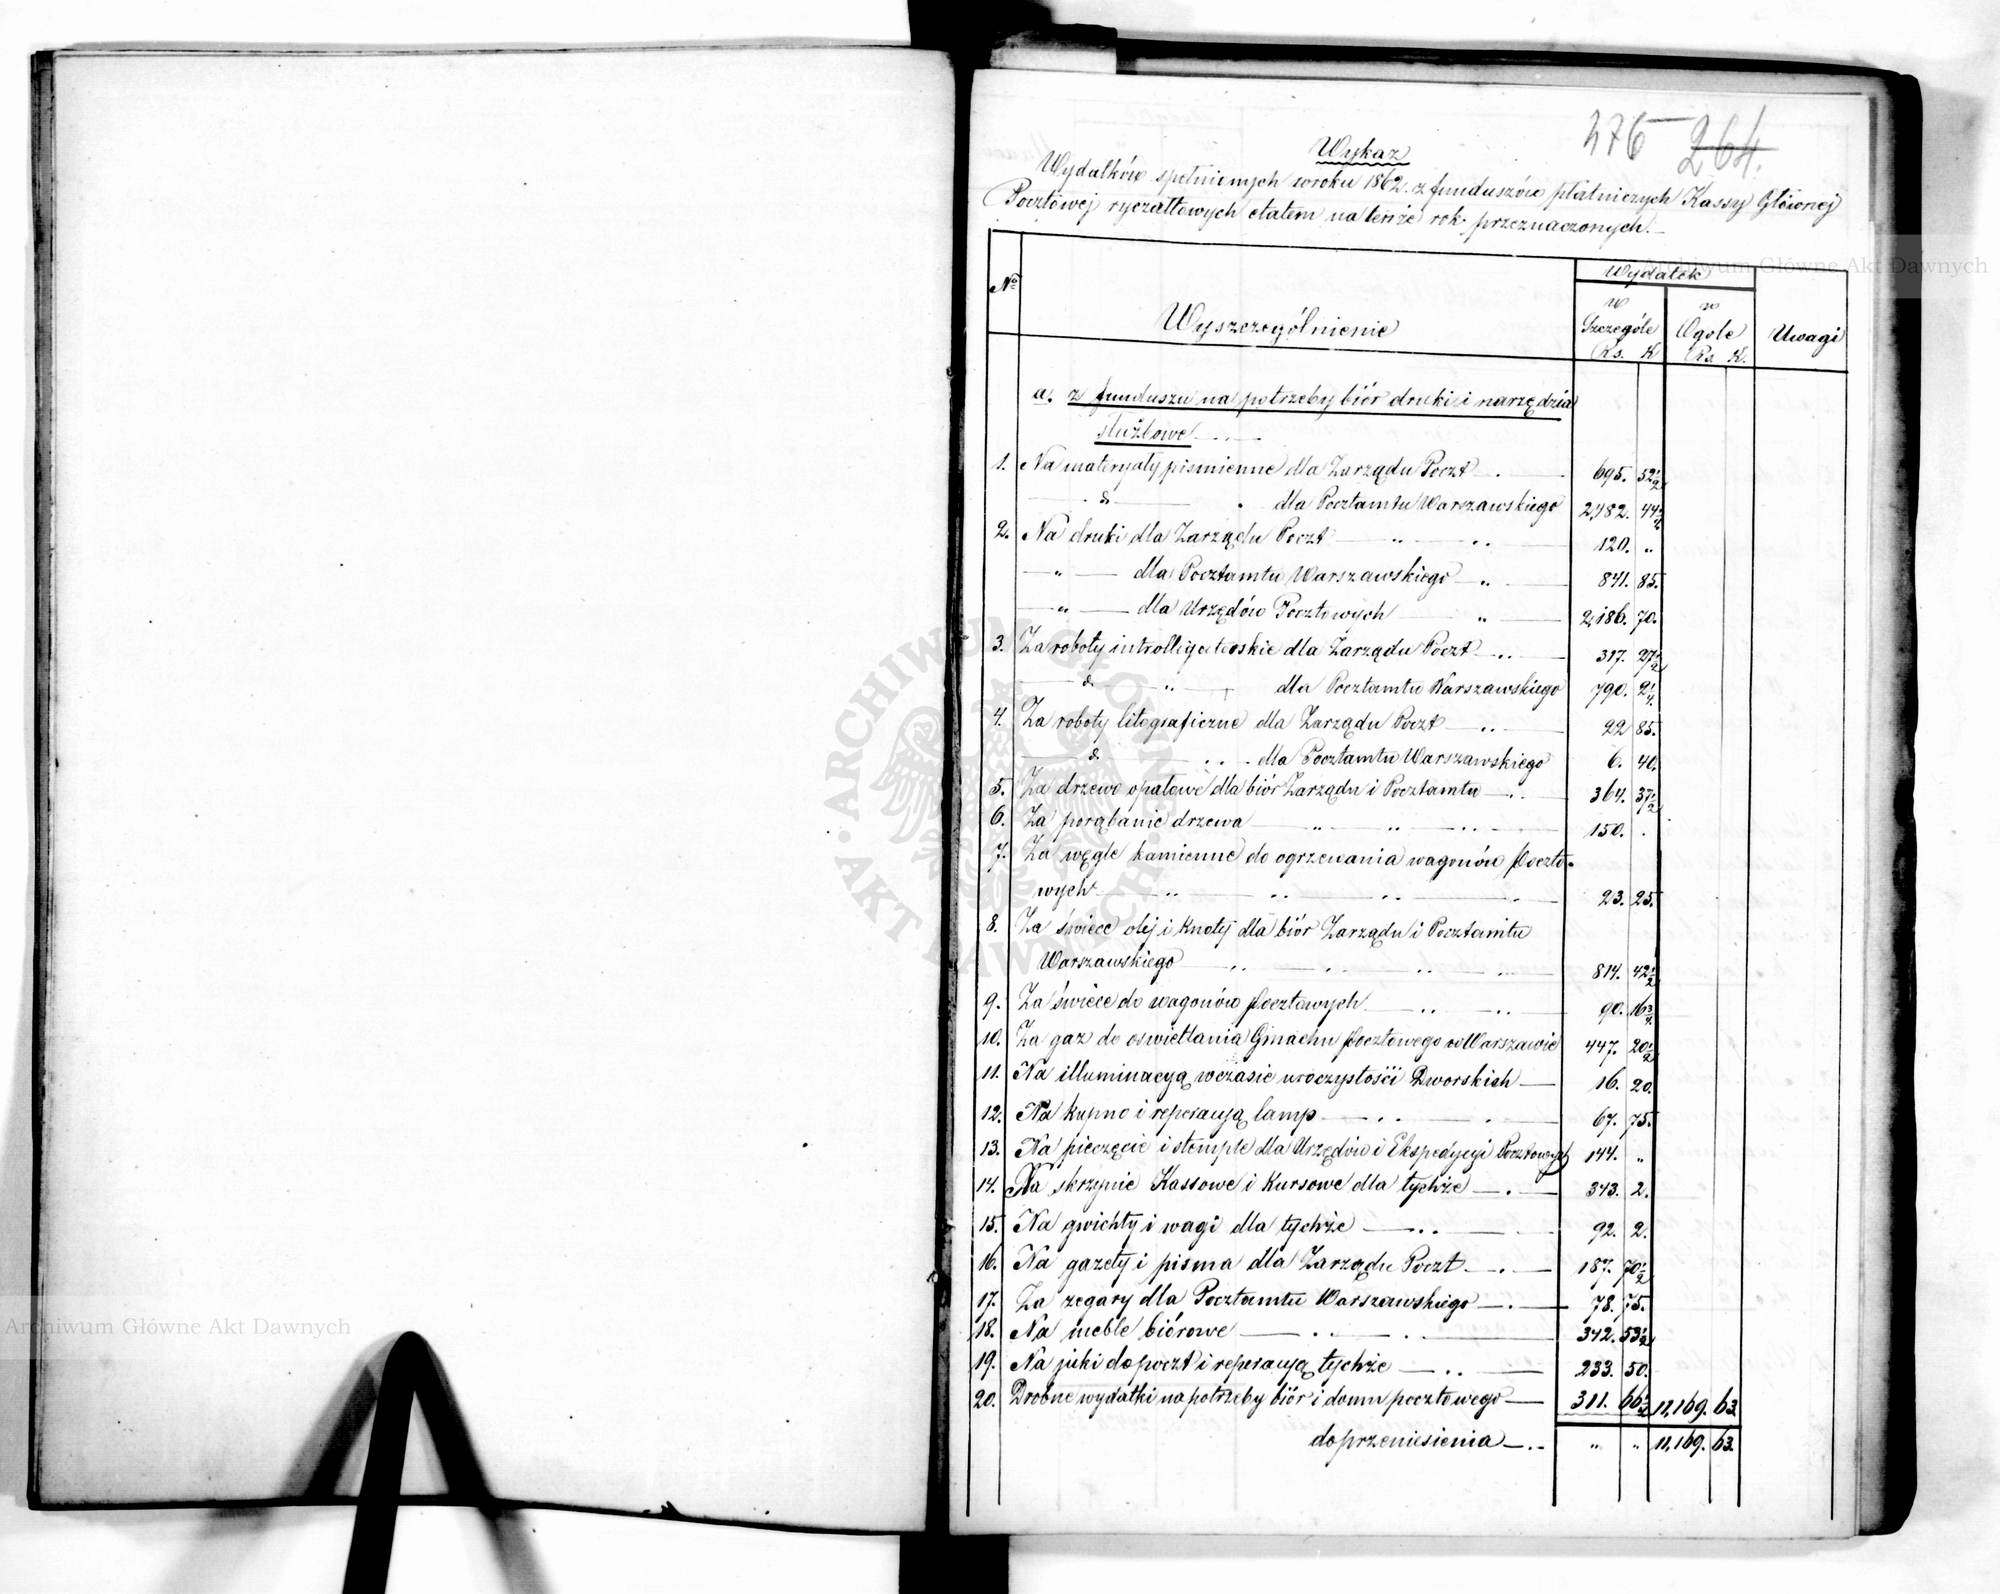 276 264.
Wykaz
Wydatków spełnionych w roku 1862. z funduszów płatniczych Kassy Głównej
Pocztowej ryczałtowych etatem na tenże rok przeznaczonych.
Wydatek
№ Wyszczególnienie w Szczególe Rs. K w Ogole Rs. K. Uwagi
a. z funduszu na potrzeby biór druki i narzędzia
służbowe
1. Na materyały piśmienne dla Zarządu Poczt 695. 52½
d° dla Pocztamtu Warszawskiego 2,482. 44
2. Na druki dla Zarządu Poczt 120. "
" dla Pocztamtu Warszawskiego 841. 85.
" dla Urzędów Pocztowych 2,186. 70.
3. Za roboty introlligatorskie dla Zarządu Poczt 317. 27½
d° " dla Pocztamtu Warszawskiego 790. 2¼
4. Za roboty litograficzne dla Zarządu Poczt 22 85.
d° dla Pocztamtu Warszawskiego 6. 40.
5. Za drzewo opałowe dla biór Zarządu i Pocztamtu 364. 37½
6. Za porąbanie drzewa 150. .
7. Za węgle kamienne do ogrzewania wagonów Poczto-
wych 23. 25.
8. Za świece olej i knoty dla biór Zarządu i Pocztamtu
Warszawskiego 814. 42½
9. Za świece do wagonów pocztowych 90. 16¾
10. Za gaz do oswietlania Gmachu pocztowego w Warszawie 447. 20½
11. Na illuminacyą w czasie uroczystości Dworskich 16. 20.
12. Na kupno i reperacyą lamp 67. 75.
13. Na pieczęcie i stemple dla Urzędów i Ekspedycyi Pocztowych 144. "
14. Na skrzynie Kassowe i Kursowe dla tychże 343. 2.
15. Na gwichty i wagi dla tychże 92. 2.
16. Na gazety i pisma dla Zarządu Poczt 187. 70½
17. Za zegary dla Pocztamtu Warszawskiego 78. 75.
18. Na meble biórowe 342. 53½
19. Na juki do poczt i reperacyą tychże 233. 50.
20. Drobne wydatki na potrzeby biór i domu pocztowego 311. 66½ 11,169. 63
do przeniesienia " " 11,169. 63.
Archiwum Główne Akt Dawnych
Archiwum Główne Akt Dawnych
ARCHIWUM GŁÓWNE AKT DAWNYCH